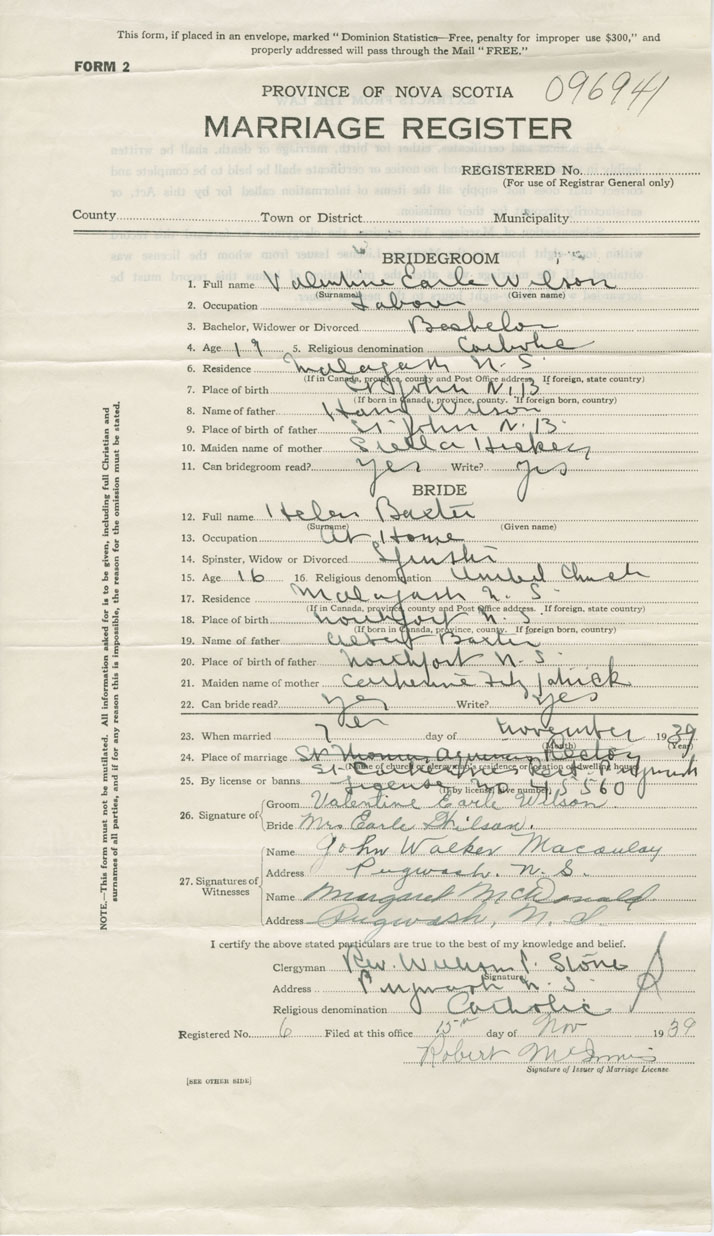 This form, if placed in an envelope, marked "Dominion Statistics—Free, penalty for improper use $300," and
properly addressed will pass through the Mail "FREE."
FORM 2
PROVINCE OF NOVA SCOTIA 096941
MARRIAGE REGISTER
REGISTERED No.
(For use of Registrar General only)
County Town or District Municipality
BRIDEGROOM
1. Full name Valentine Earle Wilson
(Surname) (Given name)
2. Occupation Labour
3. Bachelor, Widower or Divorced Bachelor
4. Age 19 5. Religious denomination Catholic
6. Residence Malagash N.S.
(If in Canada, province, county and Post Office address. If foreign, state country)
7. Place of birth St John N.B.
(If born in Canada, province, county. If foreign born, country)
8. Name of father Wilson
9. Place of birth of father St John N.B.
10. Maiden name of mother Stella Hickey
11. Can bridegroom read? yes Write? yes
BRIDE
12. Full name Helen Baxter
(Surname) (Given name)
13. Occupation At Home
14. Spinster, Widow or Divorced Spinster
15. Age 16 16. Religious denomination United Church
17. Residence Malagash N.S.
(If in Canada, province, county and Post Office address. If foreign, state country)
18. Place of birth Northport N.S.
(If born in Canada, province, county. If foreign born, country)
19. Name of father Albert Baxter
20. Place of birth of father Northport N.S.
21. Maiden name of mother Catherine Fitzpatrick
22. Can bride read? yes Write? yes
23. When married 7 day of November 1939
(Month) (Year)
24. Place of marriage St Thomas Aquinas Rectory
(Name of church or clergyman's residence or location of dwelling house)
St Catherines Pugwash
25. By license or banns License no. 45560
(If by license, give number)
26. Signature of Groom Valentine Earle Wilson
Bride Mrs Earle Wilson.
27. Signatures of Witnesses Name John Walker Macaulay
Address Pugwash. N.S.
Name Margaret McDonald
Address Pugwash, N.S.
I certify the above stated particulars are true to the best of my knowledge and belief.
Clergyman Rev. William P. Stone
Signature
Address Pugwash N.S.
Religious denomination Catholic
Registered No. 6 Filed at this office 15th day of Nov 1939
Robert McInnis
Signature of Issuer of Marriage License
[SEE OTHER SIDE]
NOTE.—This form must not be mutilated. All information asked for is to be given, including full Christian and
surnames of all parties, and if for any reason this is impossible, the reason for the omission must be stated.